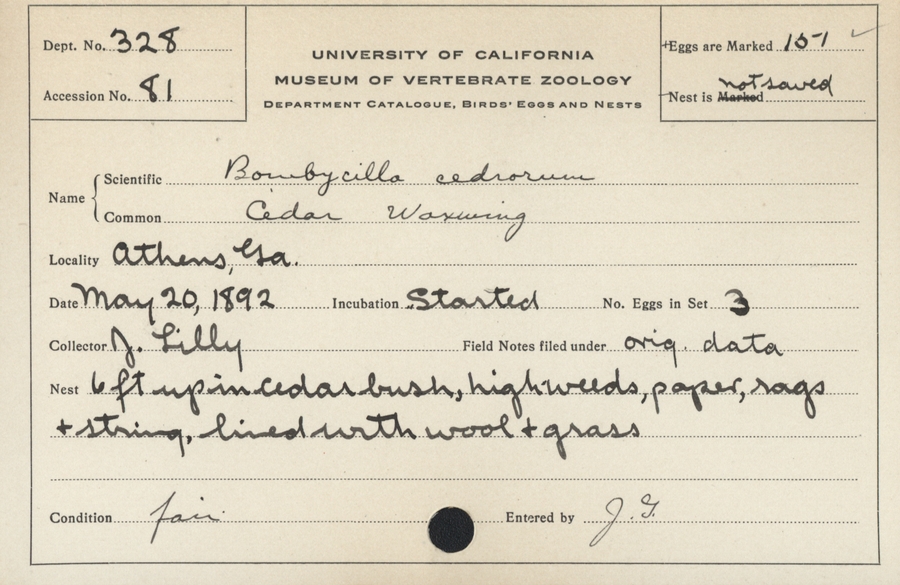 Dept. No. 328
Accession No. 81
UNIVERSITY OF CALIFORNIA
MUSEUM OF VERTEBRATE ZOOLOGY
DEPARTMENT CATALOGUE, BIRDS' EGGS AND NESTS
Eggs are Marked 151
not saved
Nest is Marked
Name Scientific Bombycilla cedrorum
Common Cedar Waxwing
Locality Athens, Ga.
Date May 20, 1892 Incubation Started No. Eggs in Set 3
Collector J. Lilly Field Notes filed under orig. data
Nest 6 ft up in cedar bush, high weeds, paper, rags
+ string, lined with wool + grass
Condition fair Entered by J. G.